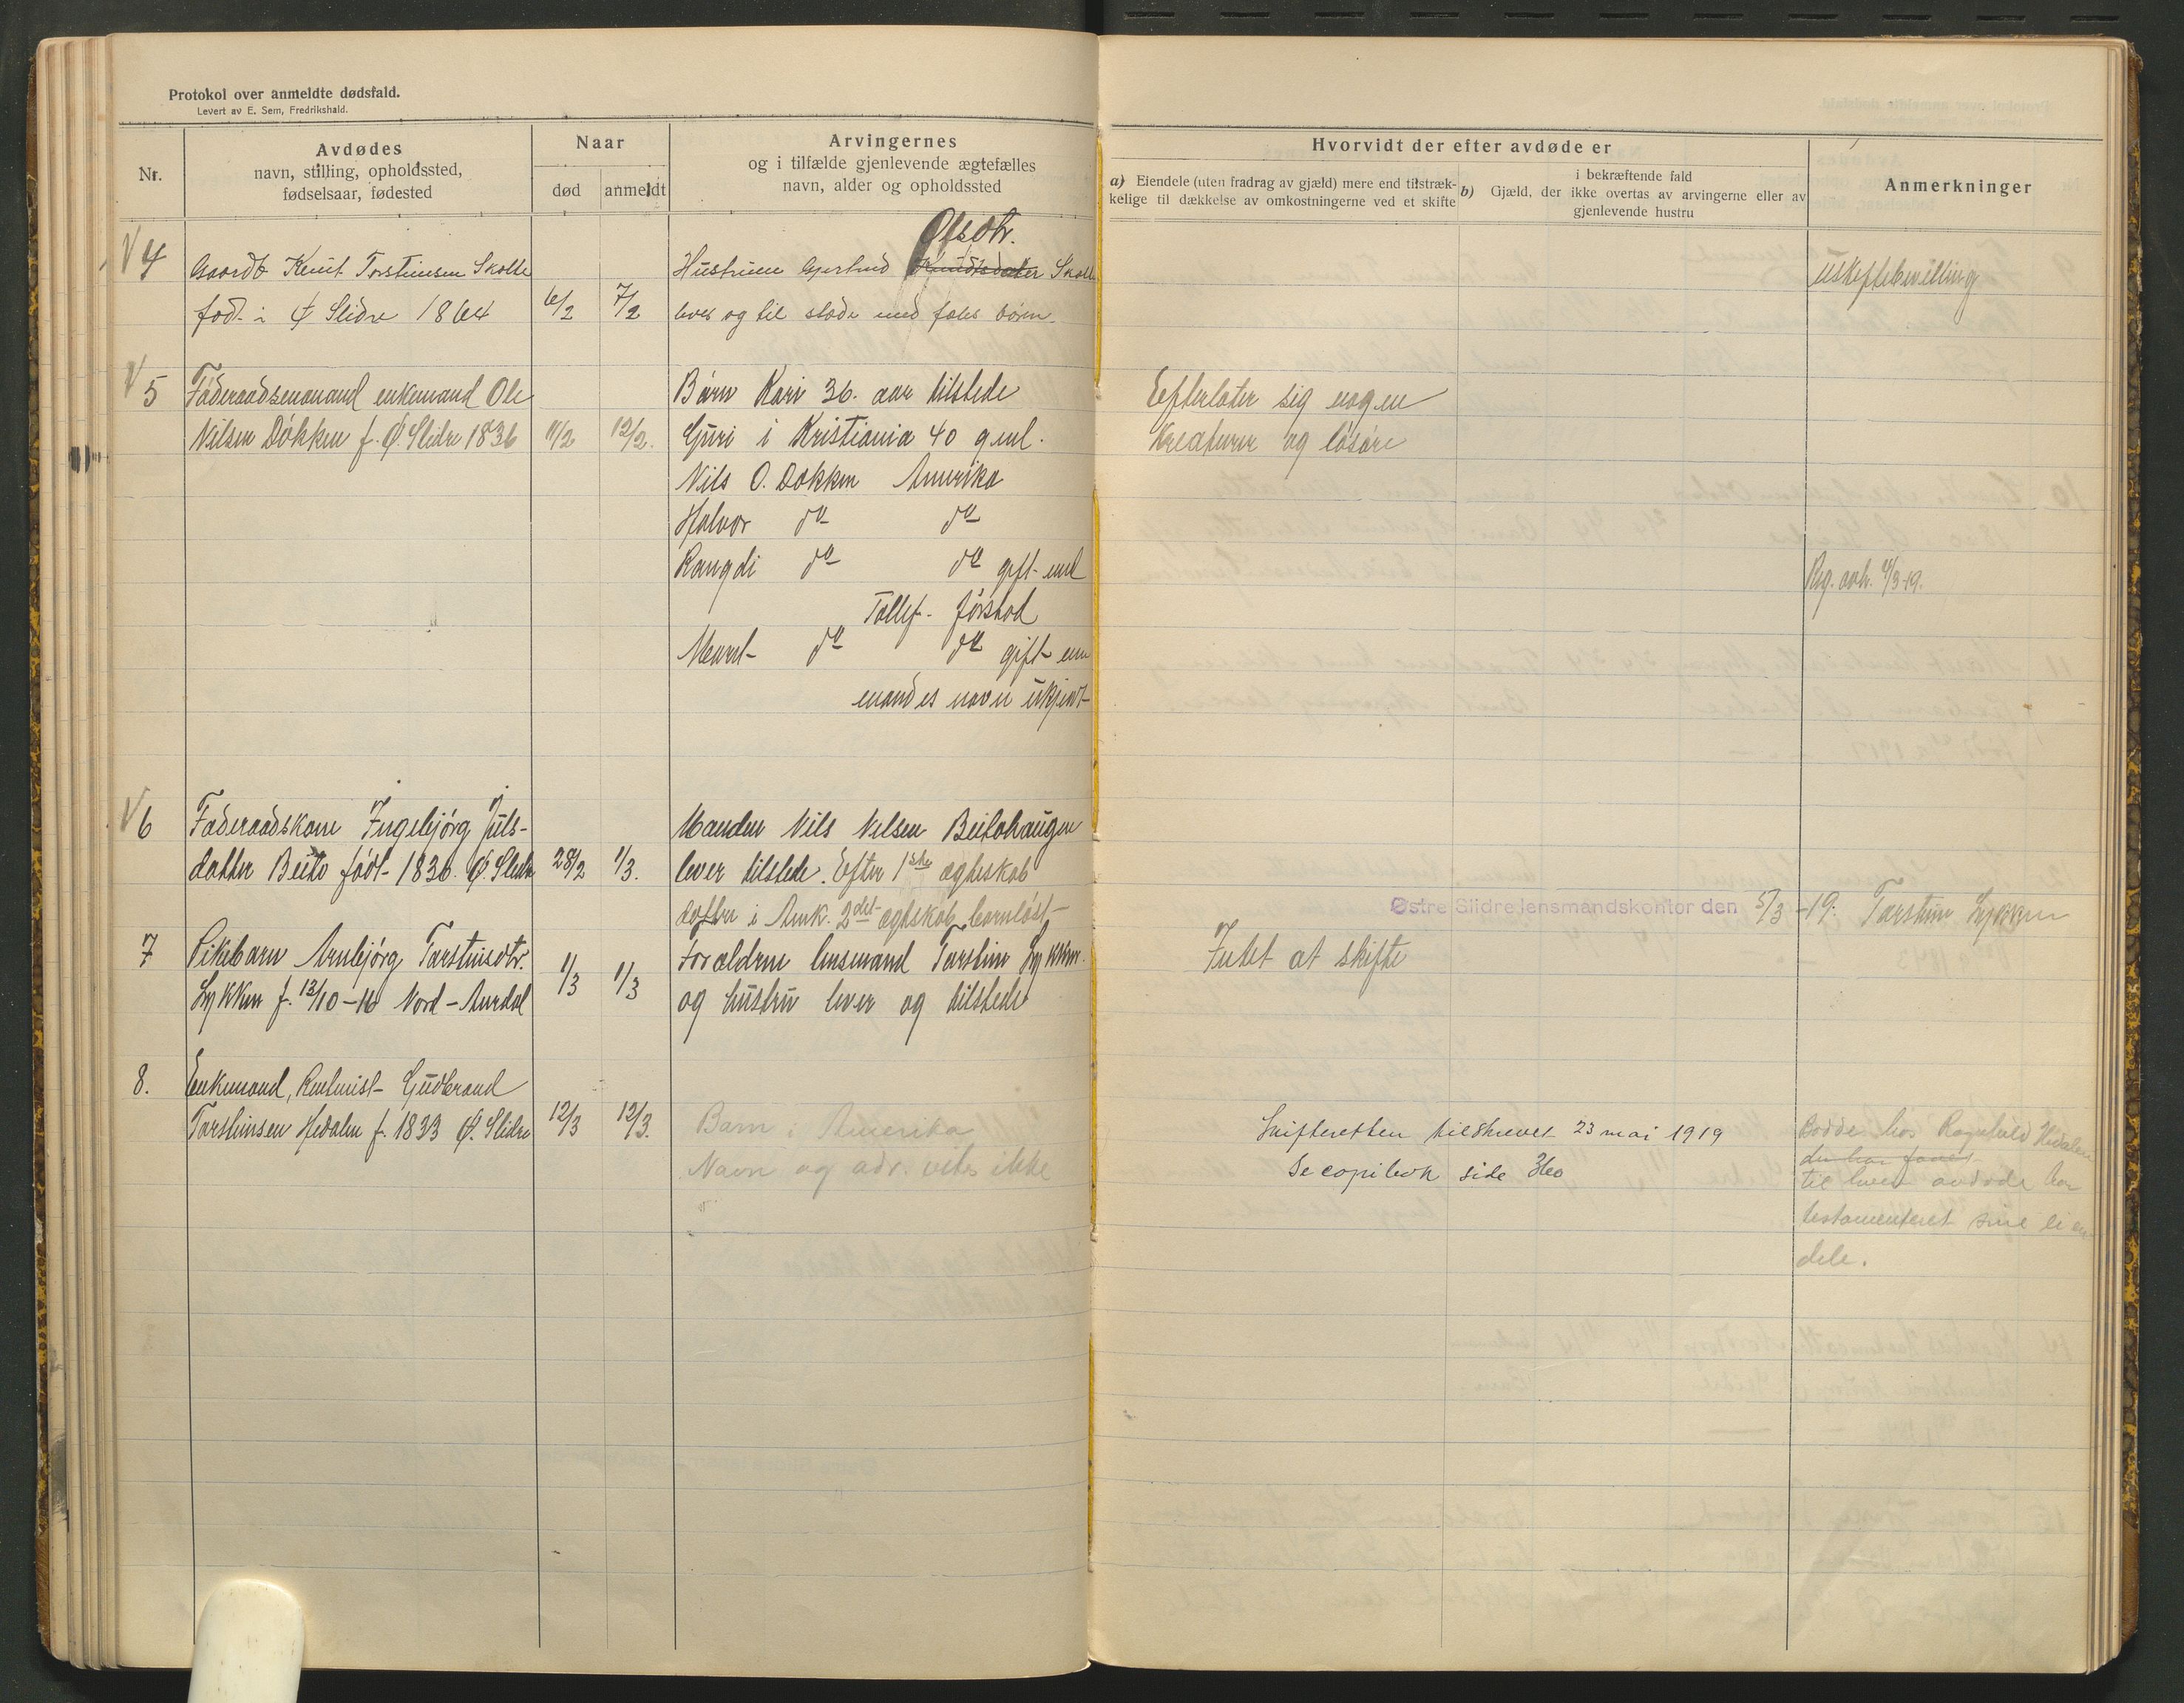 Protokol over anmeldte dødsfald.
Levert av E. Sem, Fredrikshald.
Nr.
Avdødes
navn, stilling, opholdssted,
fødselsaar, fødested
Naar
død
anmeldt
Arvingernes
og i tilfælde gjenlevende ægtefælles
navn, alder og opholdssted
Hvorvidt der efter avdøde er
a) Eiendele (uten fradrag av gjæld) mere end tilstræk-
kelige til dækkelse av omkostningerne ved et skifte
i bekræftende fald
b) Gjæld, der ikke overtas av arvingerne eller av
gjenlevende hustru
Anmerkninger
Olsdtr.
V 4 Gaardb Knut Torstinsen Skolte Hustruen Gjertrud Knudtsdater Skolte uskiftebevilling
fød. i Ø Slidre 1864 6/2 7/2 lever og til stede med fæles börn
V 5 Föderaadsmand enkemand Ole Börn Kari 36. aar tilstede Eefterlater sig nogen
Nilsen Dökken f. Ö. Slidre 1836 11/2 12/2. Guri i Kristiania 40 gml. Kreaturer og lösöre
Nils O. Dokken Amerika
Halvor do do
Rangdi do do gift- med Reg. avh. 4/3-19.
Tollef Jörstad
Marit do do gift- em
mandes navn ukjent-
V 6 Föderaadskone Ingebjörg Juls- Manden Nils Nilsen Beitohaugen
datter Beito född- 1836. Ö. Slidre 28/2 1/3. lever tilstede. Efter 1ste ægteskab
datter i Amk. 2det ægtskab barnlöst- Østre Slidre lensmandskontor den 5/3 -19. Torstein Lykken
7 Pikebarn Arnbjörg Torstinsdtr. 1/3 1/3 Forældrene lensmand Torstin Lykken. Intet at skifte
Lykken f. 13/10-16 Nord-Aurdal og hustru lever og tilstede
8. Enkemand, Gudbrand
Torstinsen Hedalen f. 1833 Ö. Slidre 12/3 12/3. Barn i Amerika Skifteretten tilskrevet 23 mai 1919 Bodde hos Ragnhild Hedalen
Navn og adr. vites ikke Se copibok side 360 der har
til hvem avdøde har
testamenteret sine eien-
dele.